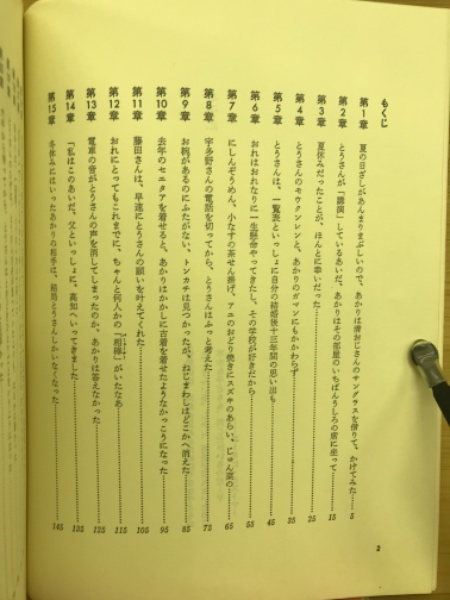 もくじ
第1章 夏の日ざしがあんまりまぶしいので、あかりは清おじさんのサングラスを借りて、かけてみた 5
第2章 とうさんが「講演」しているあいだ、あかりはその部屋のいちばんうしろの席に坐って 15
第3章 夏休みだったことが、ほんとに幸いだった 25
第4章 とうさんのモウクンレンと、あかりのガマンにもかかわらず 35
第5章 とうさんは、一覧表といっしょに自分の結婚後十三年間の思い出も 45
第6章 おれはおれなりに一生懸命やってきたし、その学校が好きだから 55
第7章 にしんぞうめん、小なすの茶せん揚げ、アユのおどり焼きにスズキのあらい、じゅん菜の 65
第8章 宇多野さんの電話を切ってから、とうさんはふっと考えた 75
第9章 お椀があるのにふたがない、トンカチは見つかったが、ねじまわしはどこかへ消えた 85
第10章 去年のセーターを着せると、あかりはかかしに古着を着せたようなかっこうになった 95
第11章 藤田さんは、早速にとうさんの願いを叶えてくれた 105
第12章 おれにとってもこれまでに、ちゃんと何人かの「相棒」がいたなあ 115
第13章 電車の音がとうさんの声を消してしまったのか、あかりは答えなかった 125
第14章 「私はこのあいだ、父といっしょに、高知へいってきました 135
第15章 冬休みにはいったあかりの相手は、結局とうさんしかいなくなった 145
2